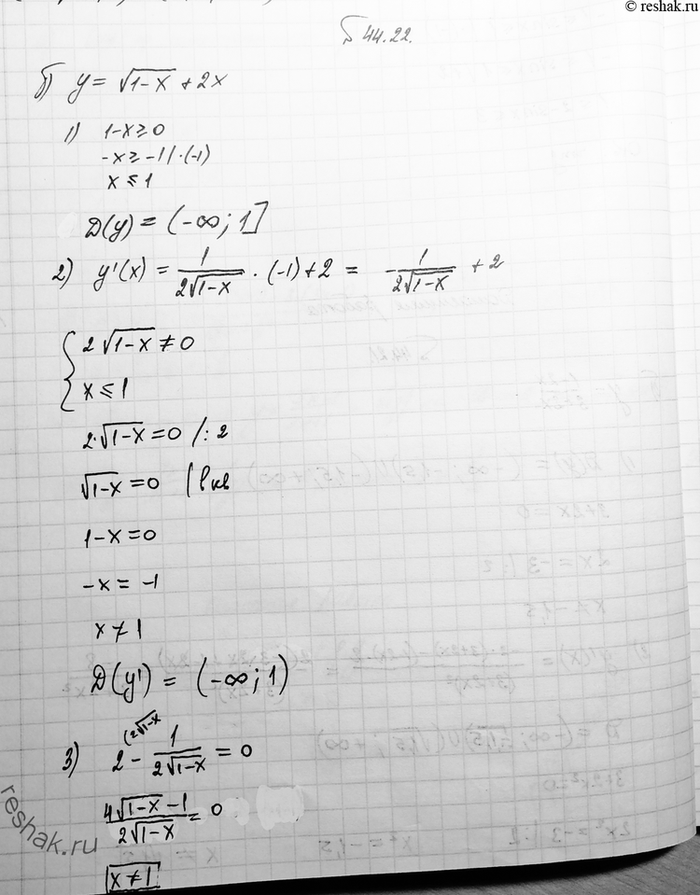 © reshak.ru
§ 44.22.
б) y = √(1-x) + 2x
1) 1-x ≥ 0
-x ≥ -1 | ·(-1)
x ≤ 1
D(y) = (-∞; 1]
2) y'(x) = 1/(2√(1-x)) · (-1) + 2 = -1/(2√(1-x)) + 2
{ 2√(1-x) ≠ 0
x ≤ 1
2·√(1-x) = 0 /: 2
√(1-x) = 0 | в кв
1-x = 0
-x = -1
x ≠ 1
D(y') = (-∞; 1)
3) 2 (2√(1-x) - 1/(2√(1-x)) = 0
(4√(1-x) - 1)/(2√(1-x)) = 0
x ≠ 1
reshak.ru